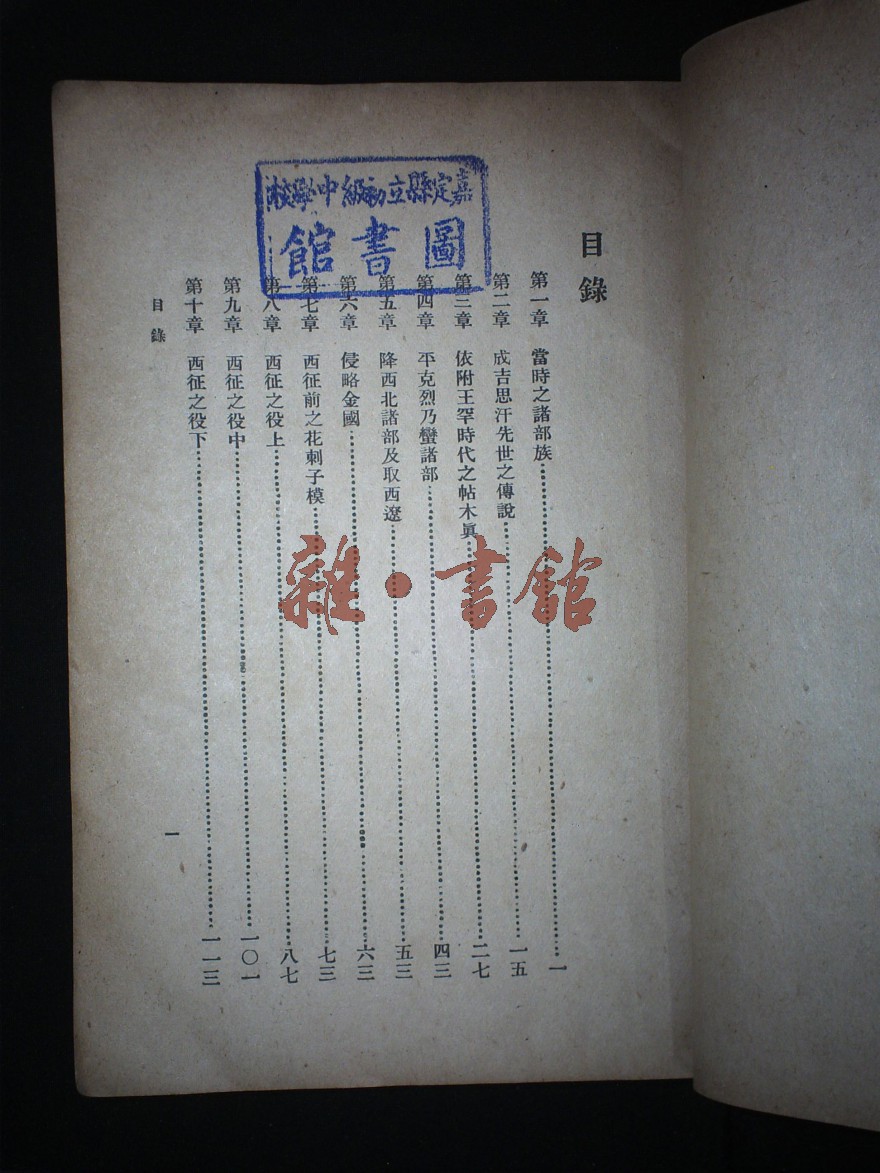 嘉定縣立初級中學校
圖書館
目錄
第一章 當時之諸部族 一
第二章 成吉思汗先世之傳說 一五
第三章 依附王罕時代之帖木眞 二七
第四章 平克烈乃蠻諸部 四三
第五章 降西北諸部及取西遼 五三
第六章 侵略金國 六三
第七章 西征前之花剌子模 七三
第八章 西征之役上 八七
第九章 西征之役中 一〇一
第十章 西征之役下 一一三
目錄
一
雜·書館